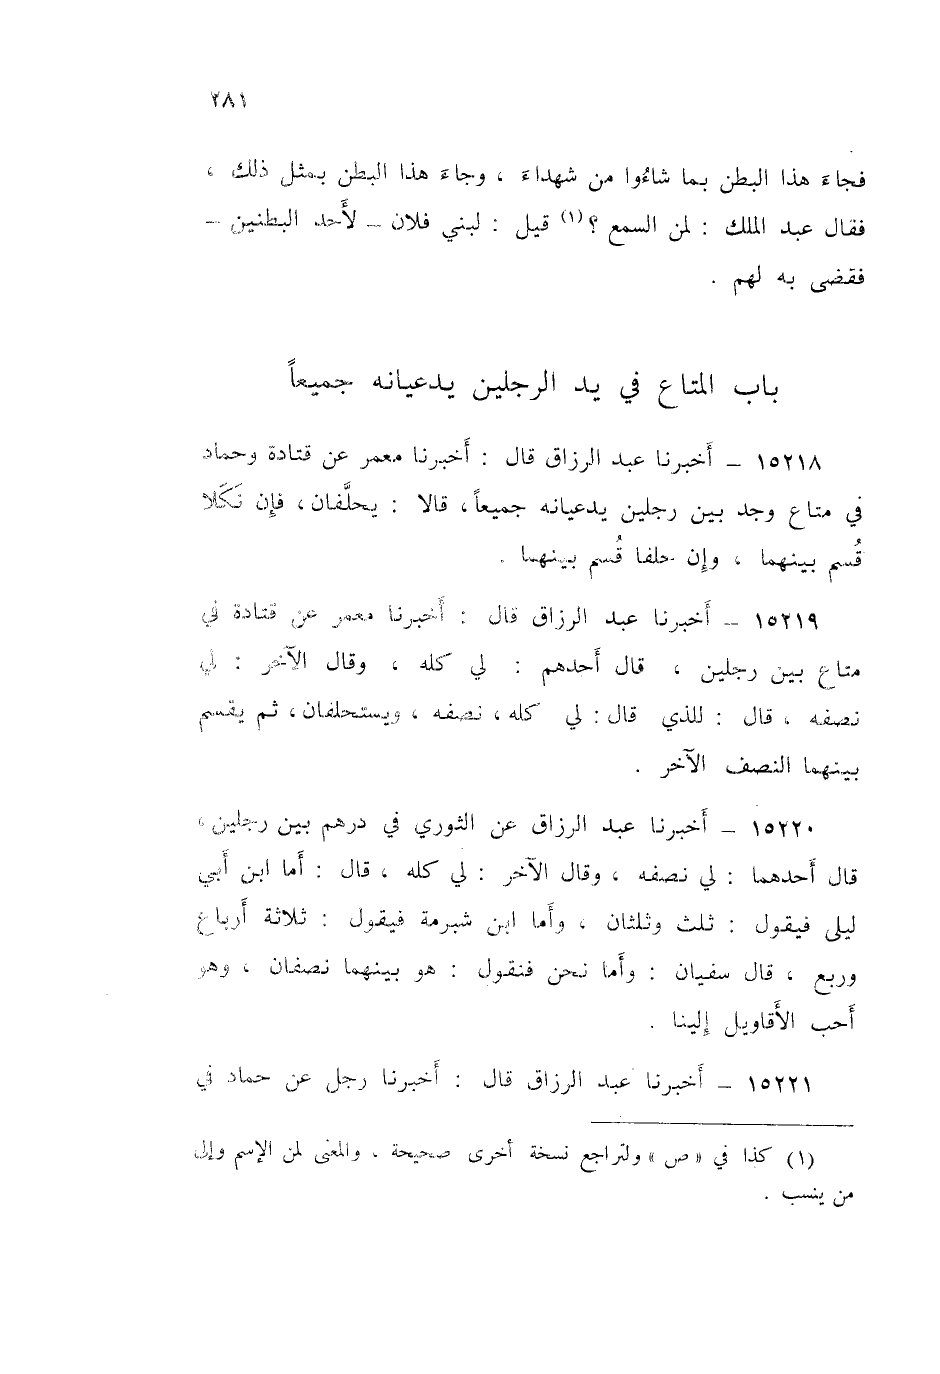 ٢٨١
فجاءَ هذا البطن بما شاءُوا من شهداءَ ، وجاءَ هذا البطن بمثل ذلك ،
فقال عبد الملك : لمن السمع ؟(١) قيل : لبني فلان – لأَحد البطنين –
فقضى به لهم .
باب المتاع في يد الرجلين يدعيانه جميعاً
١٥٢١٨ – أَخبرنا عبد الرزاق قال : أَخبرنا معمر عن قتادة وحماد
في متاع وجد بين رجلين يدعيانه جميعاً، قالا : يحلَّفان، فإن نَكَلا
قُسم بينهما ، وإن حلفا قُسم بينهما .
١٥٢١٩ – أَخبرنا عبد الرزاق قال : أَخبرنا معمر عن قتادة في
متاع بين رجلين ، قال أَحدهم : لي كله ، وقال الآخر : لي
نصفه ، قال : للذي قال: لي كله، نصفه ، ويستحلفان، ثم يقسم
بينهما النصف الآخر .
١٥٢٢٠ – أَخبرنا عبد الرزاق عن الثوري في درهم بين رجلين،
قال أَحدهما : لي نصفه ، وقال الآخر : لي كله ، قال : أَما ابن أَبي
ليلى فيقول : ثلث وثلثان ، وأَما ابن شبرمة فيقول : ثلاثة أَرباع
وربع ، قال سفيان : وأَما نحن فنقول : هو بينهما نصفان ، وهو
أَحب الأَقاويل إلينا .
١٥٢٢١ – أَخبرنا عبد الرزاق قال : أَخبرنا رجل عن حماد في
(١) كذا في « ص » ولتراجع نسخة أخرى صحيحة ، والمعنى لمن الإسم وإلى
من ينسب .